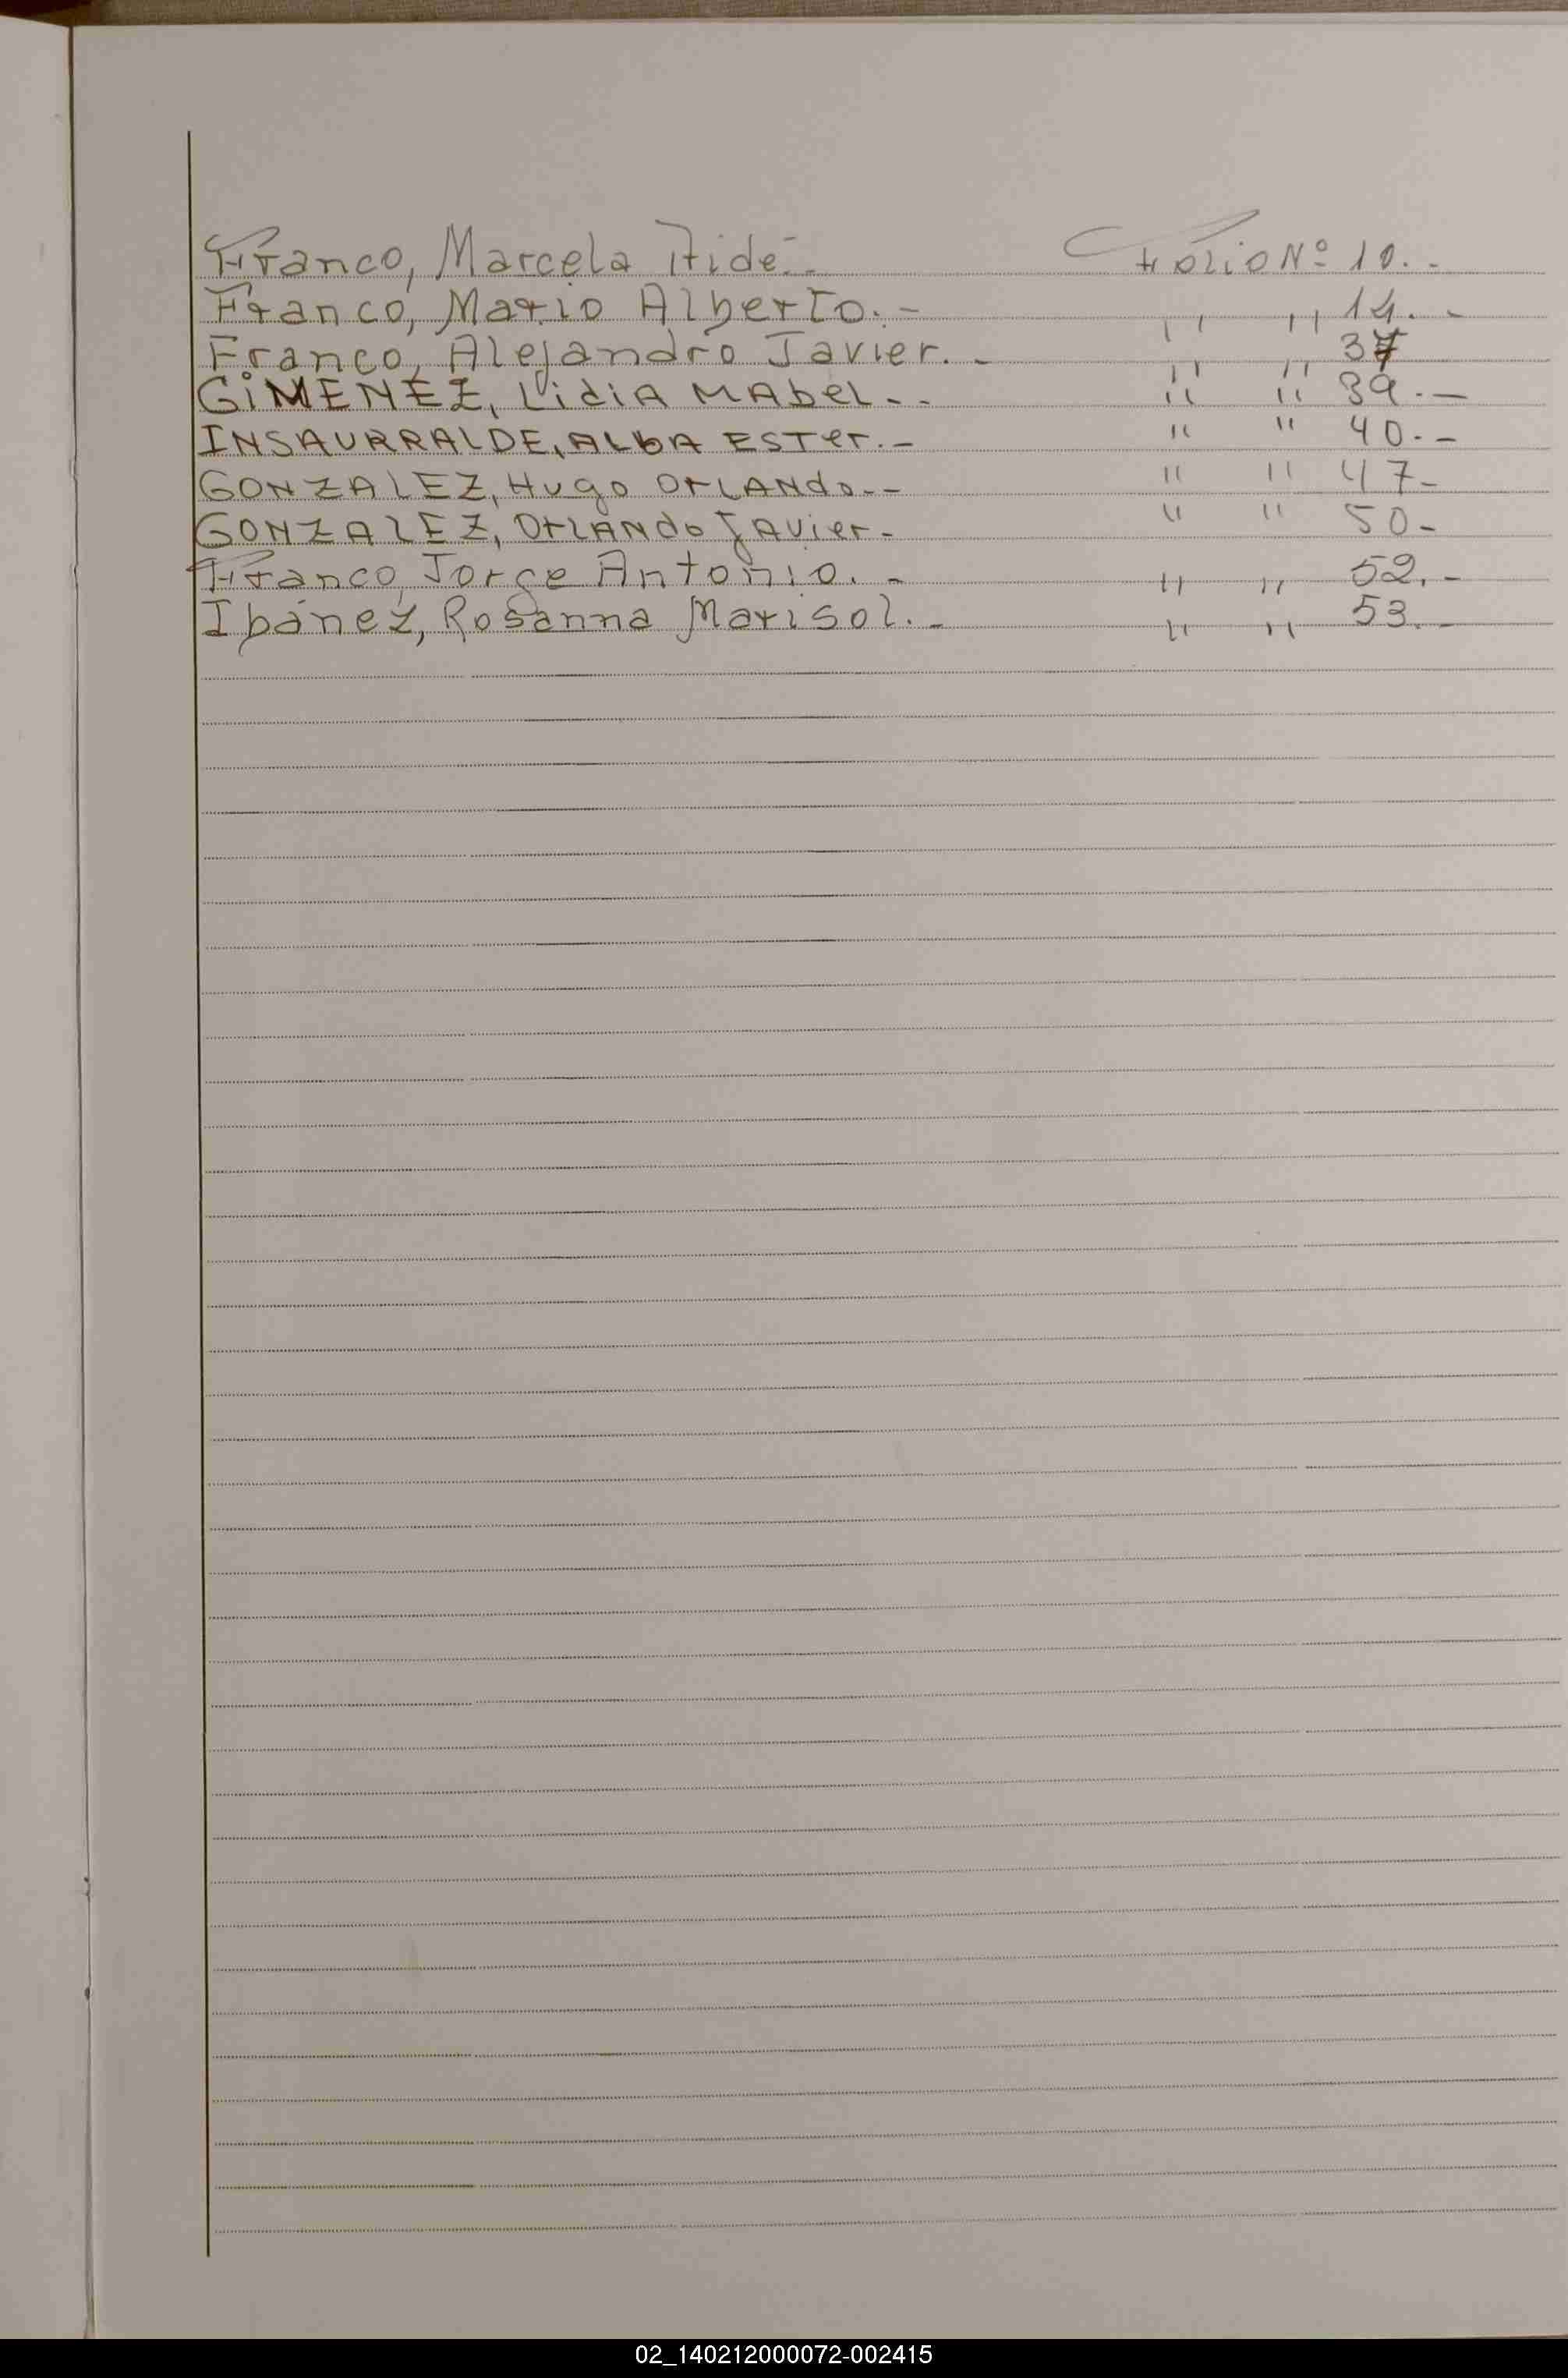 Franco, Marcela Aidé.- Folio Nº 10.-
Franco, Mario Alberto.- " " 14.-
Franco, Alejandro Javier.- " " 37
GiMENEZ, LidiA MAbeL.- " " 39.-
INSAURRALDE, ALbA ESTer.- " " 40.-
GONZALEZ, Hugo OrLANdo.- " " 47-
GONZALEZ, OrLANdo JAvier- " " 50-
Franco, Jorge Antonio.- " " 52.-
Ibánez, Rosanna Marisol.- " " 53.-
02_140212000072-002415